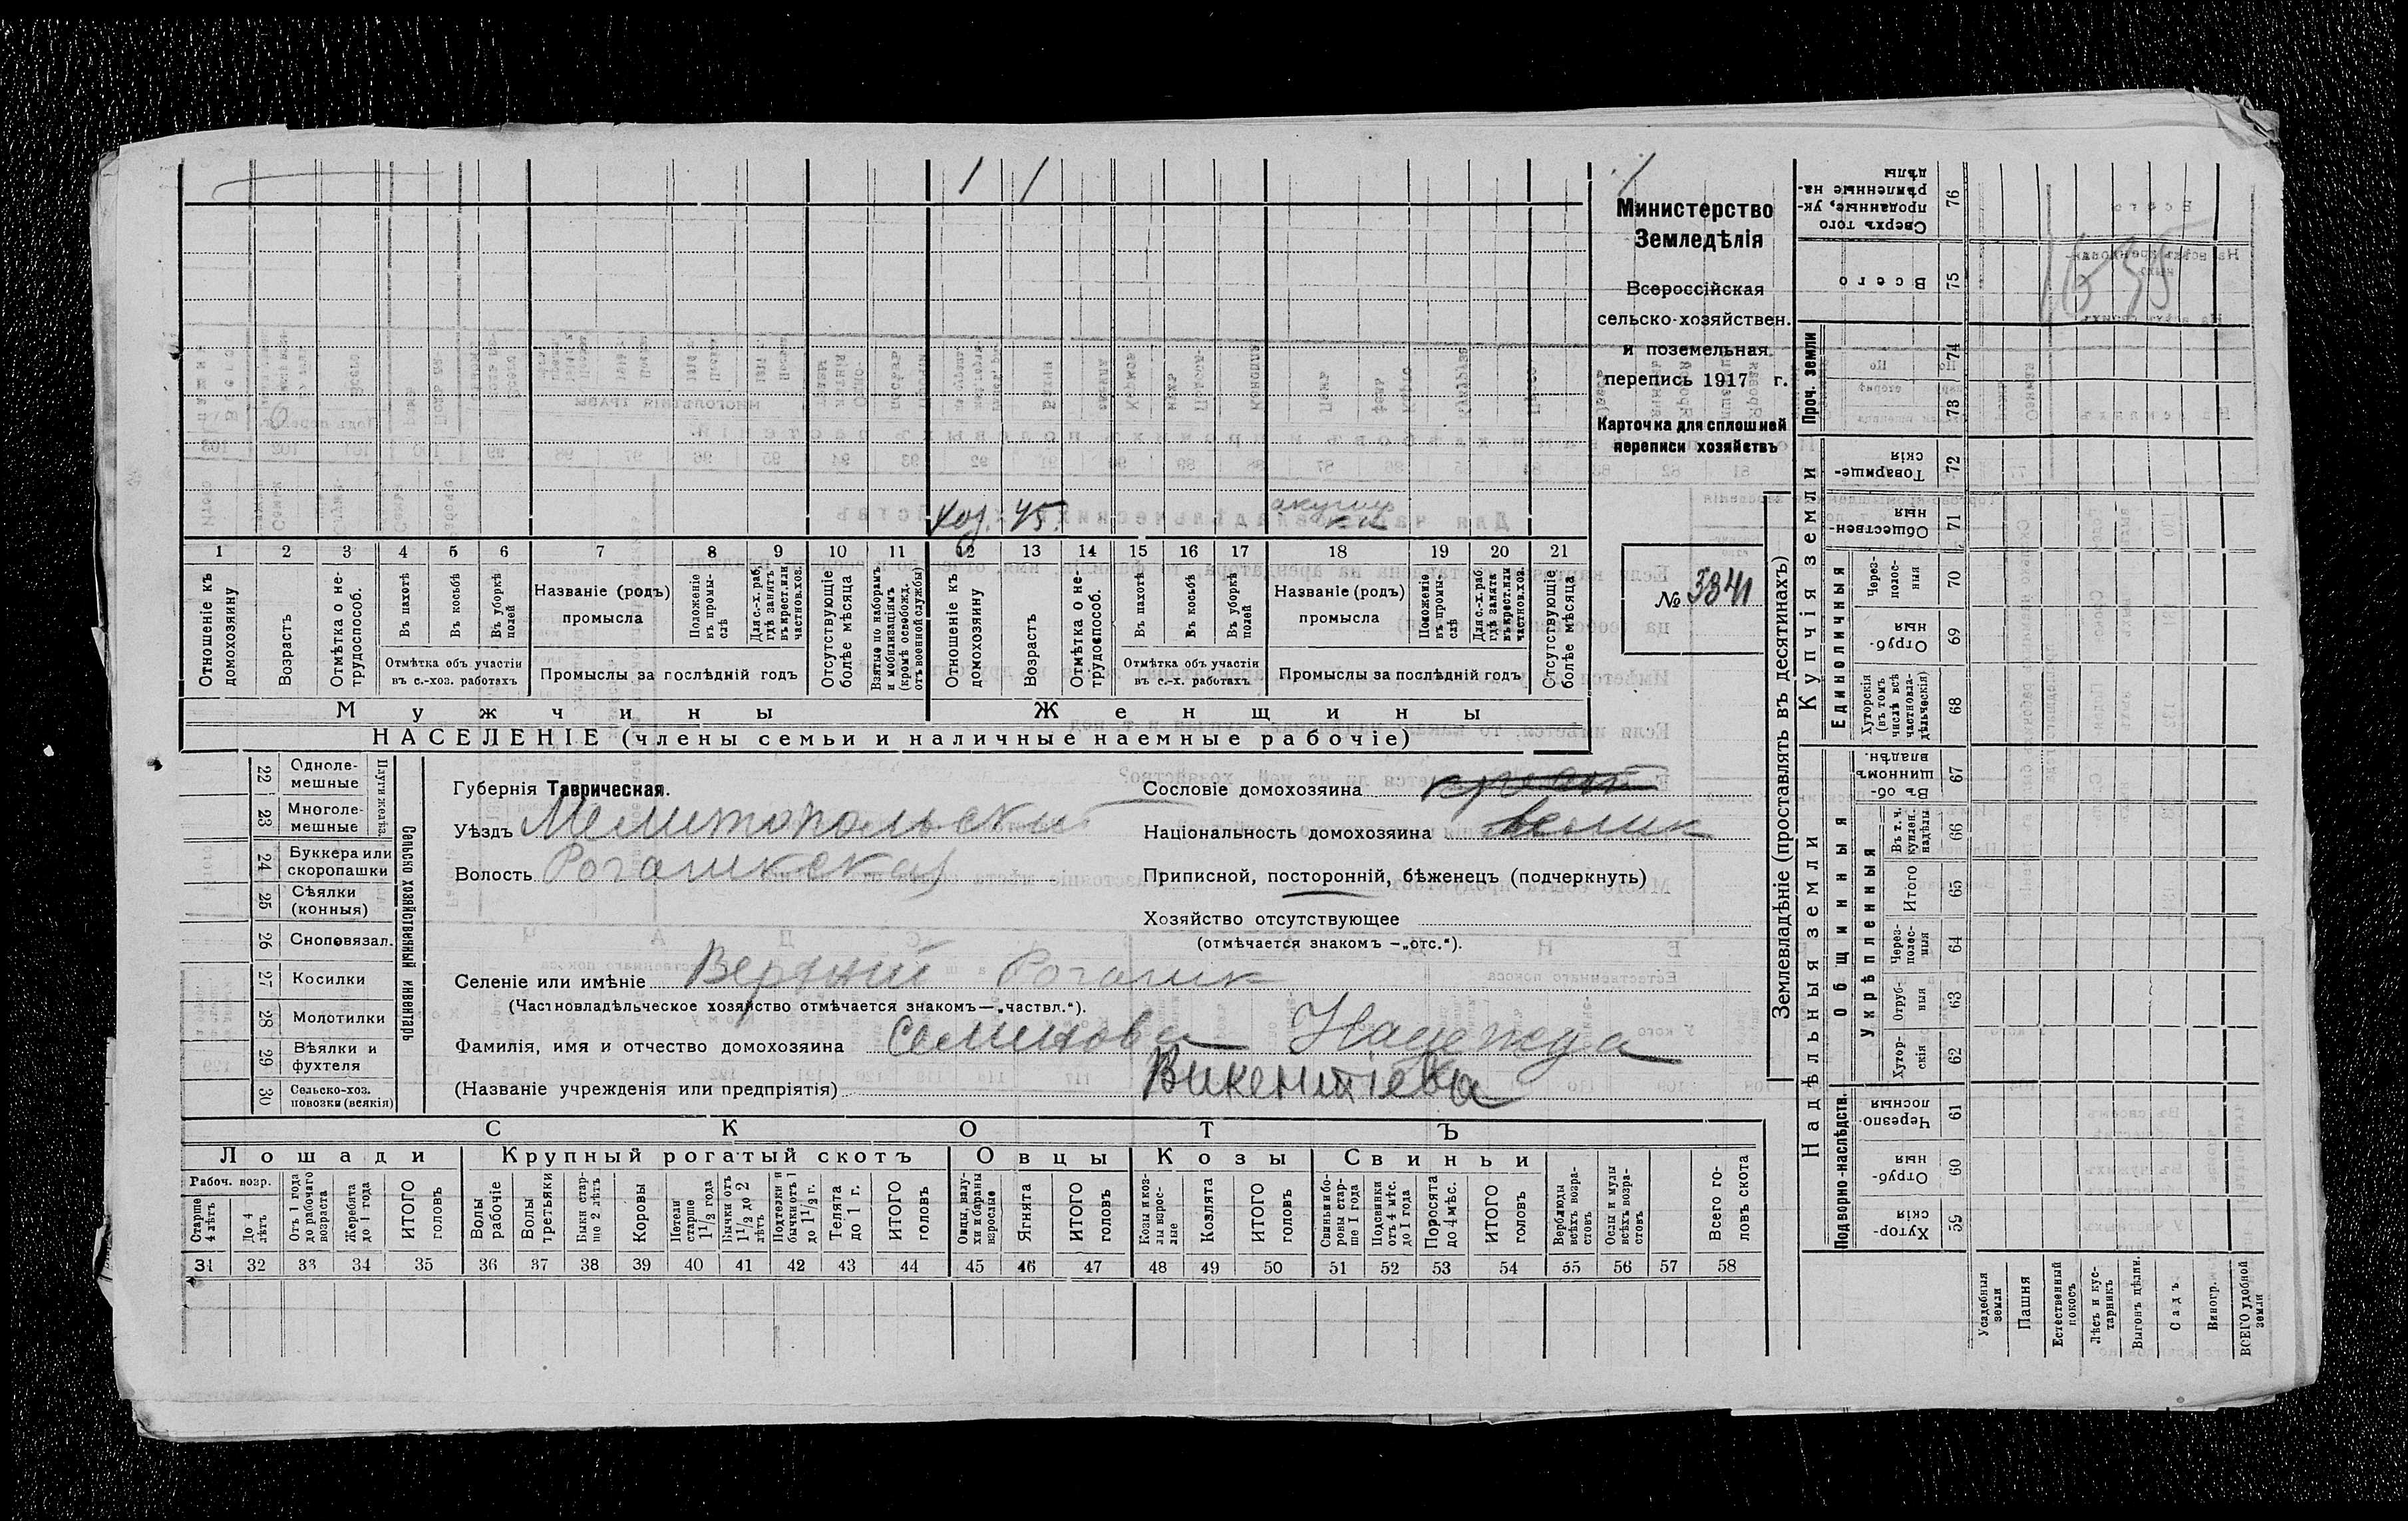 1 1
Министерство
Земледѣлія
Всероссійская
сельско-хозяйствен.
и поземельная
перепись 1917 г.
Карточка для сплошной
переписи хозяйствъ
№ 3341
хоз. 45.
1 2 3 4 5 6 7 8 9 10 11 12 13 14 15 16 17 18 19 20 21
Отношеніе къ домохозяину
Возрастъ
Отмѣтка о нетрудоспособ.
Въ пахотѣ
Въ косьбѣ
Въ уборкѣ полей
Отмѣтка объ участіи
въ с.-хоз. работахъ
Названіе (родъ)
промысла
Положеніе въ промыслѣ
Для с.-х. раб. гдѣ занятъ въ крест. или частнов. хоз.
Промыслы за послѣдній годъ
Отсутствующіе болѣе мѣсяца
Взятые по наборамъ и мобилизаціямъ (кромѣ освобожд. отъ военной службы)
Отношеніе къ домохозяину
Возрастъ
Отмѣтка о нетрудоспособ.
Въ пахотѣ
Въ косьбѣ
Въ уборкѣ полей
Отмѣтка объ участіи
въ с.-х. работахъ
Названіе (родъ)
промысла
Положеніе въ промыслѣ
Для с.-х. раб. гдѣ занята въ крест. или частнов. хоз.
Промыслы за послѣдній годъ
Отсутствующіе болѣе мѣсяца
Мужчины
Женщины
НАСЕЛЕНІЕ (члены семьи и наличные наемные рабочіе)
22 Однолемешные
23 Многолемешные
24 Буккера или скоропашки
25 Сѣялки (конныя)
26 Сноповязал.
27 Косилки
28 Молотилки
29 Вѣялки и фухтеля
30 Сельско-хоз. повозки (всякія)
Сельско хозяйственный инвентарь
Губернія Таврическая.
Уѣздъ Мелитопольски
Волость Рогачикская
Сословіе домохозяина
Національность домохозяина велик
Приписной, посторонній, бѣженецъ (подчеркнуть)
Хозяйство отсутствующее
(отмѣчается знакомъ —„отс.“).
Селеніе или имѣніе Верхній Рогачик
(Частновладѣльческое хозяйство отмѣчается знакомъ—„частвл.“).
Фамилія, имя и отчество домохозяина Семенова Надежда
(Названіе учрежденія или предпріятія) Викентіева
СКОТЪ
Лошади
Крупный рогатый скотъ
Овцы
Козы
Свиньи
Рабоч. возр.
Старше 4 лѣтъ
До 4 лѣтъ
Отъ 1 года до рабочаго возраста
Жеребята до 1 года
ИТОГО головъ
Волы рабочіе
Волы третьяки
Быки старше 2 лѣтъ
Коровы
Нетели старше 1 1/2 года
Бычки отъ 1 1/2 до 2 лѣтъ
Подтелки и бычки отъ 1 до 1 1/2 г.
Телята до 1 г.
ИТОГО головъ
Овцы, валухи и бараны взрослые
Ягнята
ИТОГО головъ
Козы и козлы взрослые
Козлята
ИТОГО головъ
Свиньи и боровы старше 1 года
Подсвинки отъ 4 мѣс. до 1 года
Поросята до 4 мѣс.
ИТОГО головъ
Верблюды всѣхъ возрастовъ
Ослы и мулы всѣхъ возрастовъ
Всего головъ скота
31 32 33 34 35 36 37 38 39 40 41 42 43 44 45 46 47 48 49 50 51 52 53 54 55 56 57 58
Землевладѣніе (проставлять въ десятинахъ)
Надѣльныя земли
Купчія земли
Проч. земли
Подворно-наслѣдств.
Общинныя
Укрѣпленныя
Единоличныя
Сверхъ того проданные, укрѣпленные надѣлы 76
Всего 75
74
73
Товарищескія 72
Общественныя 71
Черезполосныя 70
Отрубныя 69
Хуторскія (въ томъ числѣ всѣ частновладѣльческія) 68
Въ общинномъ владѣн. 67
Въ т. ч. куплен. надѣлы 66
Итого 65
Черезполосныя 64
Отрубныя 63
Хуторскія 62
Черезполосныя 61
Отрубныя 60
Хуторскія 59
Усадебныя земли
Пашня
Естественный покосъ
Лѣсъ и кустарникъ
Выгонъ цѣлин.
Садъ
Виногр.
ВСЕГО удобной земли